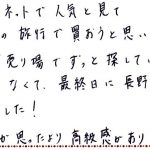 ネットで人気と見て
の旅行で買おうと思い
売り場でずっと探してい
なくて、最終日に長野
した!
が思ったより高級感があり